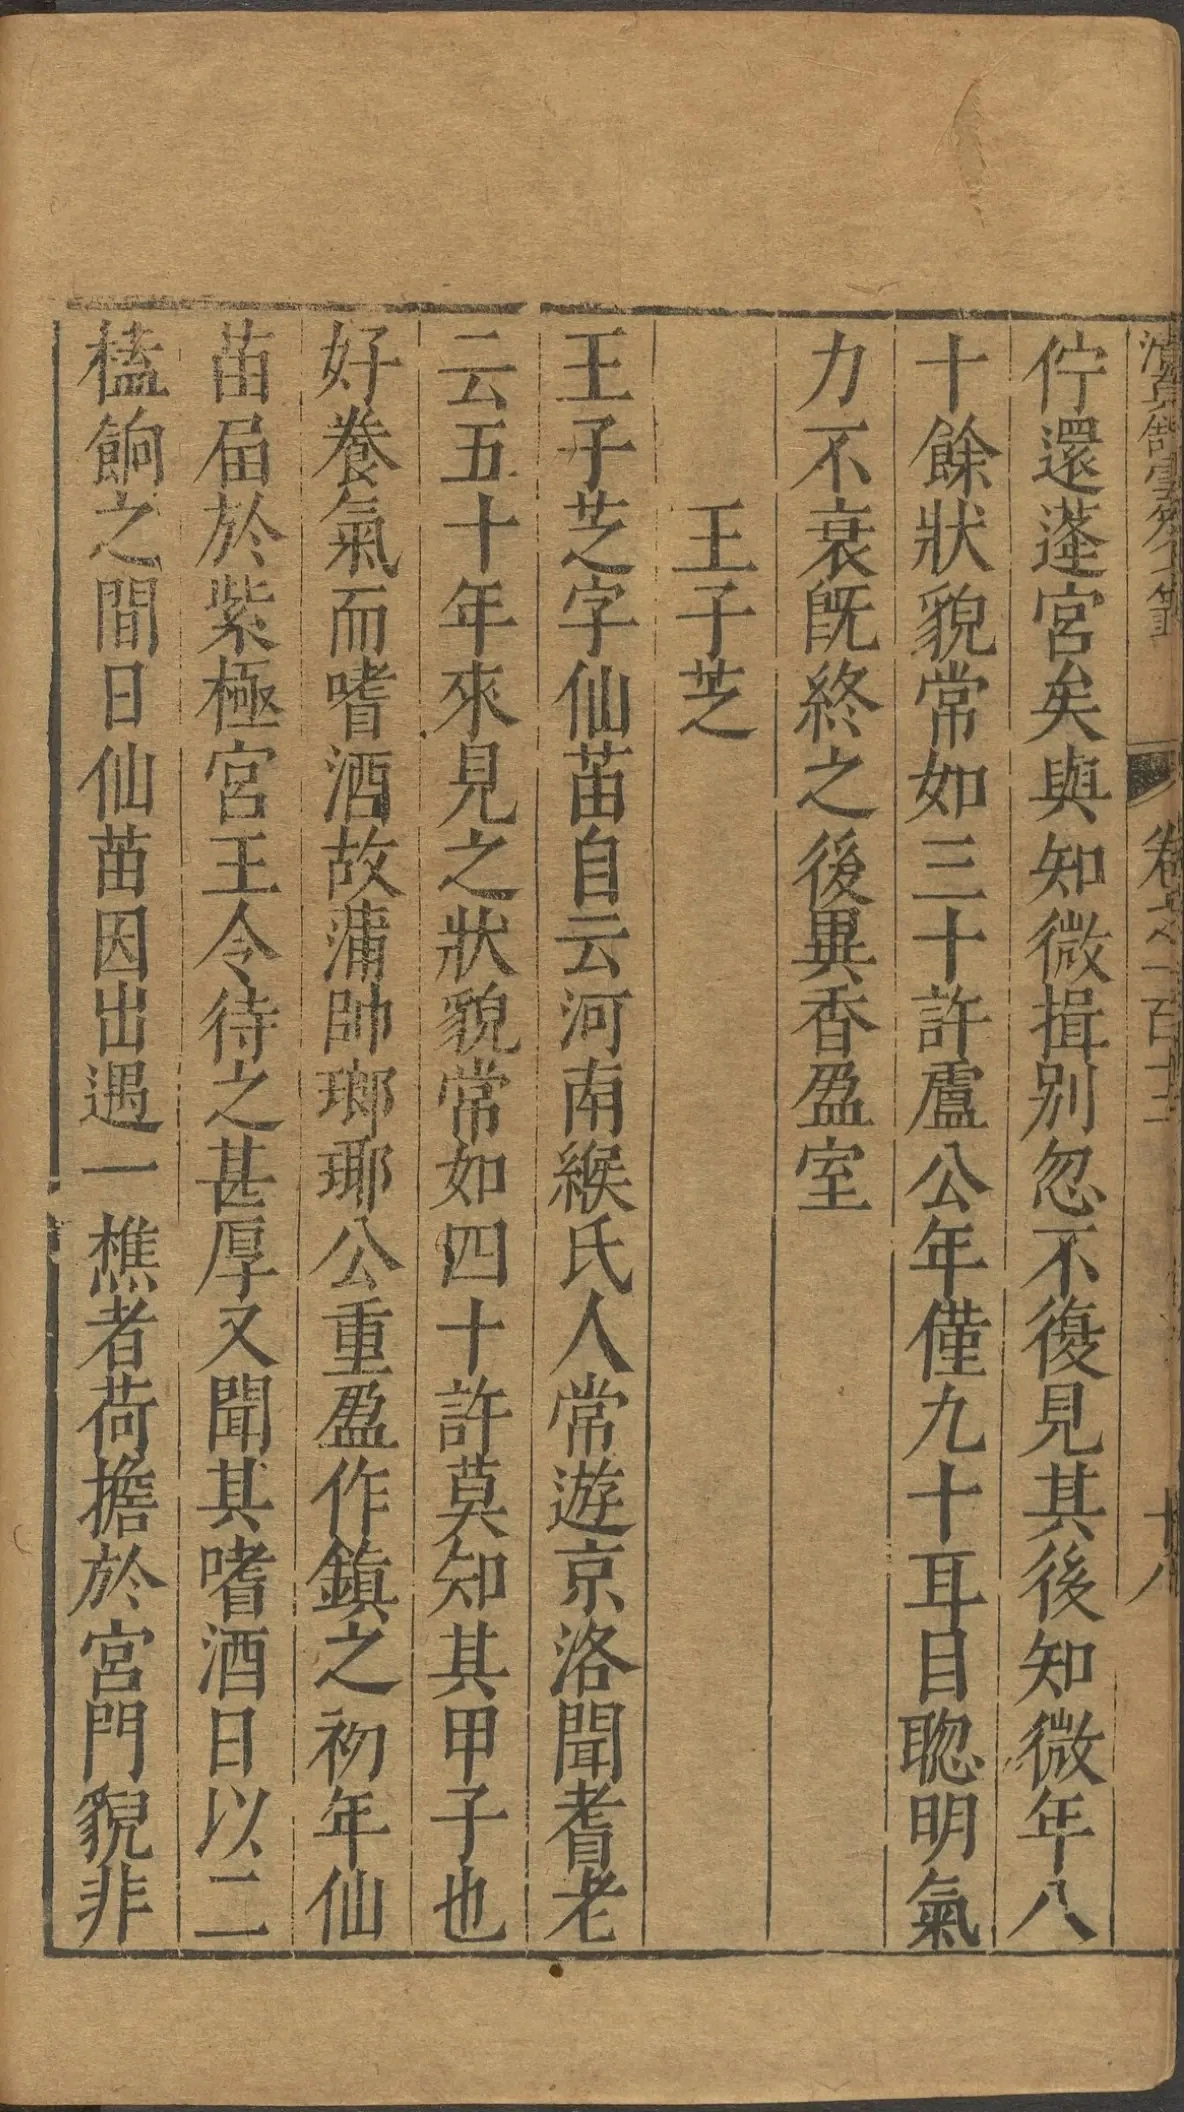 卷之一百十三
十八
佇還蓬宮矣與知微揖别忽不復見其後知微年八
十餘狀貌常如三十許盧公年僅九十耳目聦明氣
力不衰旣終之後異香盈室
王子芝
王子芝字仙苗自云河南緱氏人常遊京洛聞耆老
云五十年來見之狀貌常如四十許莫知其甲子也
好養氣而嗜酒故蒲帥瑯琊公重盈作鎮之初年仙
苗届於紫極宮王令待之甚厚又聞其嗜酒日以二
榼餉之間日仙苗因出遇一樵者荷擔於宮門貌非